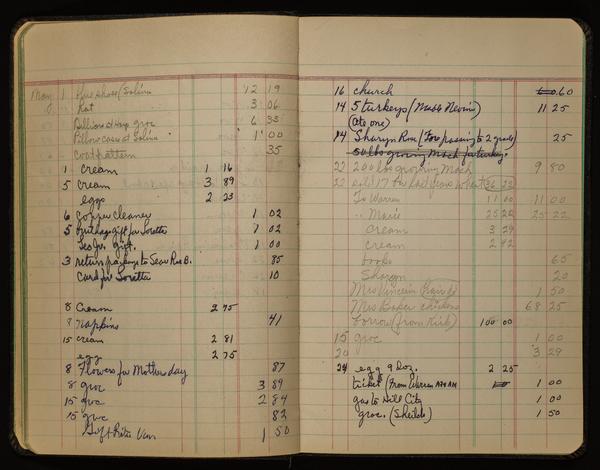 May 1 shoes (Salina 12 19
" Hat 3 06
groc 6 35
Pillow case at Salina 1 00
Coat pattern 35
1 Cream 1 16
5 Cream 3 89
eggs 2 23
6 Copper Cleaner 1 02
5 Birthday gift for Loretta 1 02
gift. 1 00
3 return postage to Sears Roe B. 85
Card for Loretta 10
8 Cream 2 75
9 Napkins 41
15 cream 2 81
egg 2 75
8 Flowers for Mother day 87
8 groc 3 89
15 groc 2 84
15 groc 82
Gift 1 50
16 church .60
14 5 turkeys (Nevin) 11 25
(Ate one)
14 Sharyn Rose (For passing to 2 grade) 25
50 lbs growing Mash for turkeys
22 200 lbs growing Mash 9 80
22 sold 17 last years wheat 36 22
To Warren 11 00 11 00
" Marie 25 22 25 22
Cream 3 29
Cream 2 42
books 65
Sharyn 20
Mrs 1 50
Mrs Baker chickens 68 25
borrow (from Kirk) 100 00
15 groc 1 00
20 3 29
24 egg 9 Doz. 2 25
ticket (From Warren 1 00
gas to Hill City 1 00
groc. (Sheilds) 1 50